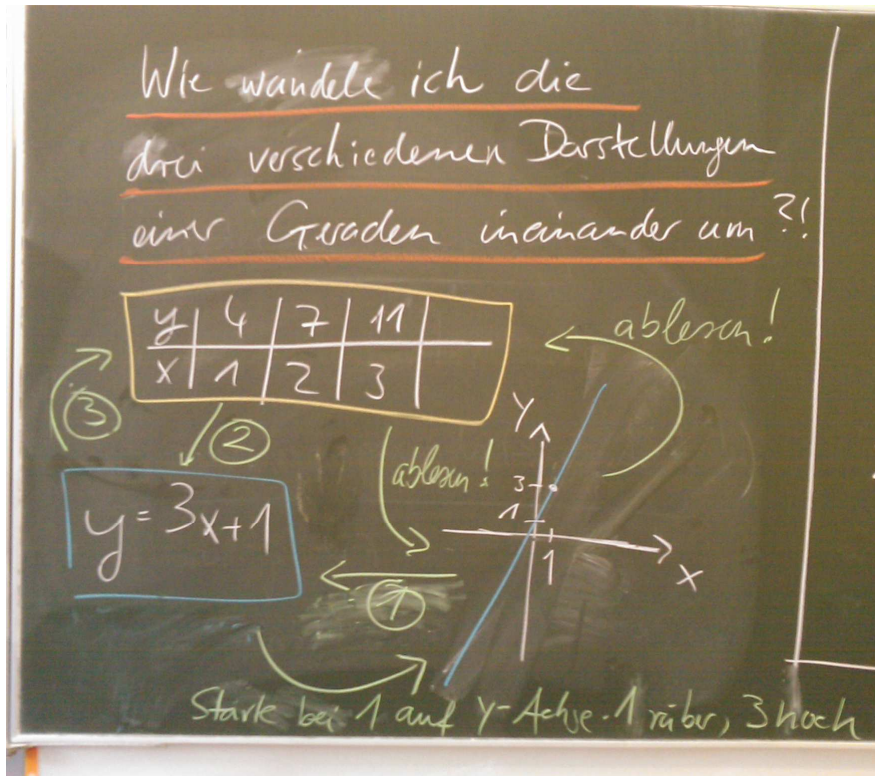 Wie wandele ich die
drei verschiedenen Darstellungen
einer Geraden ineinander um ?!
y | 4 | 7 | 11 |
x | 1 | 2 | 3 |
ablesen!
3
2
ablesen!
y = 3x+1
Y
3
1
1
X
1
Starte bei 1 auf Y-Achse. 1 rüber, 3 hoch